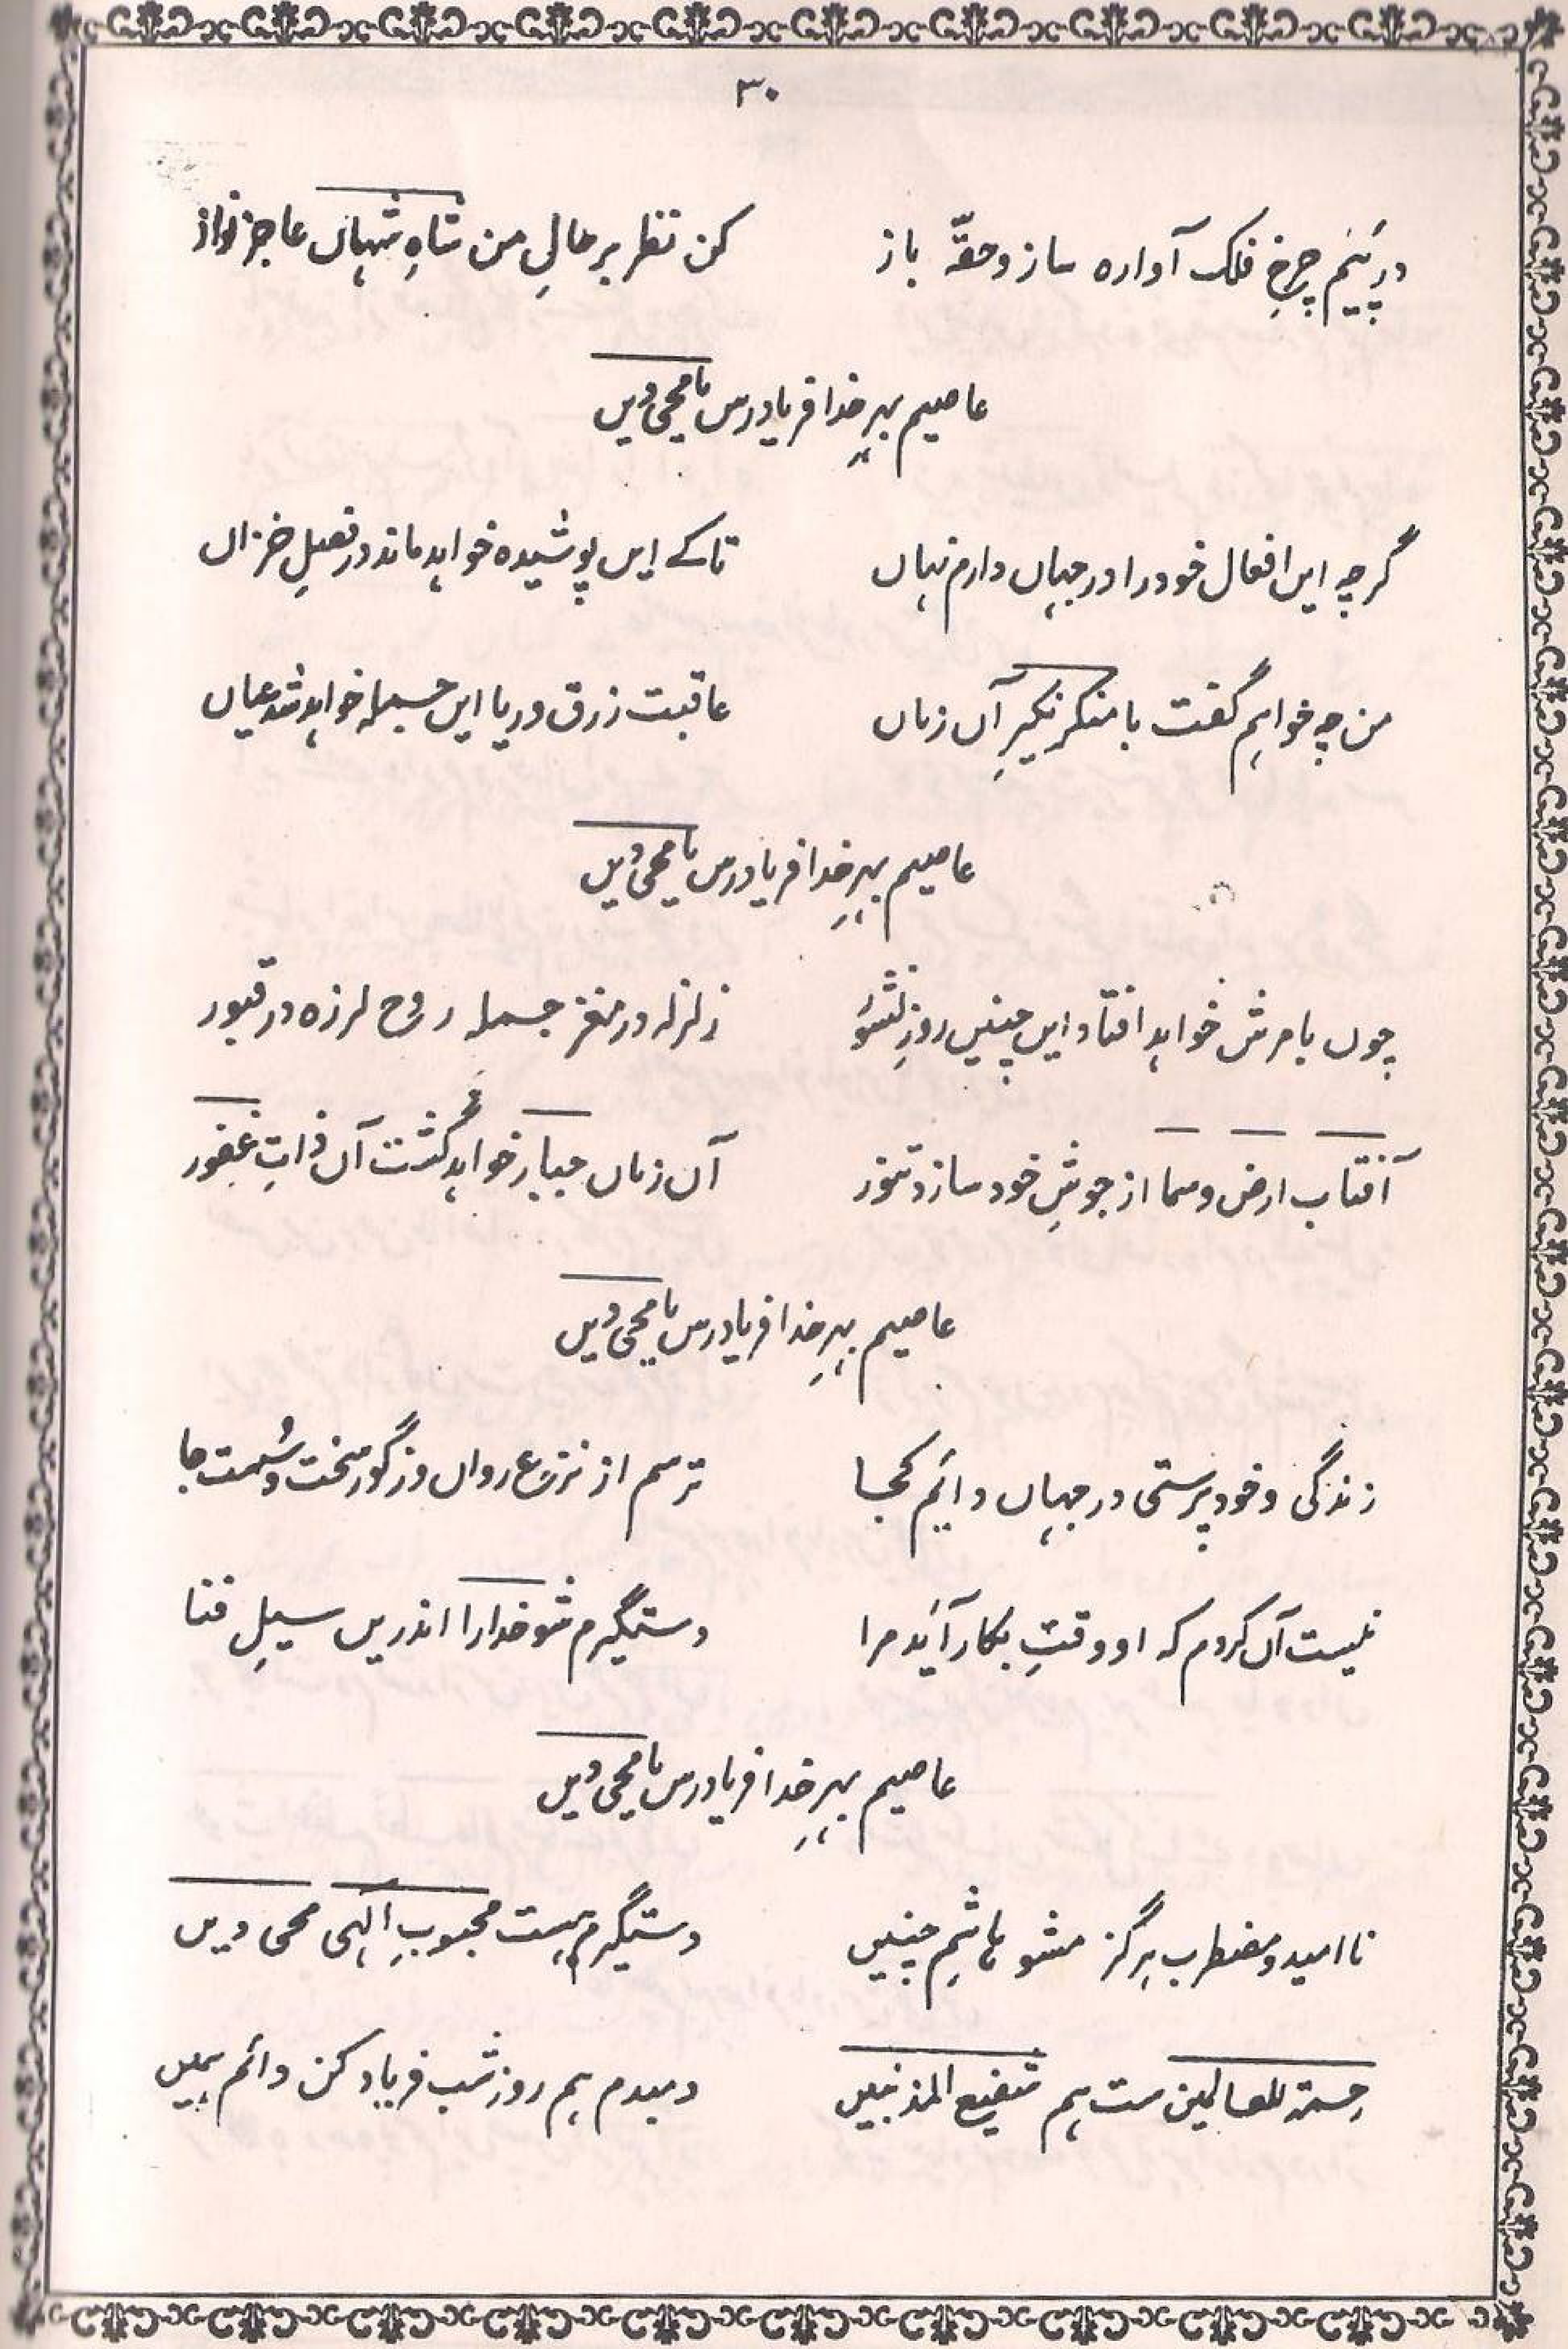 ۳۰
در پَیَم چرخِ فلک آوارہ ساز و حقّہ باز کن نظر بر حالِ من شاہِ شہاں عاجز نواز
عاصیم بہرِ خدا فریادرس یا محی دیں
گرچہ ایں افعال خود را در جہاں دارم نہاں تاکے ایں پوشیدہ خواہد ماند در فصلِ خزاں
من چہ خواہم گفت با منکر نکیرِ آں زماں عاقبت زرق و ریا ایں جملہ خواہد شد عیاں
عاصیم بہرِ خدا فریادرس یا محی دیں
چوں بامرش خواہد افتاد ایں چنیں روزِ نشور زلزلہ در مغز جملہ روح لرزہ در قبور
آفتاب ارض و سما از جوشِ خود سازد تنور آں زماں جبار خواہد گشت آں ذاتِ غفور
عاصیم بہرِ خدا فریادرس یا محی دیں
زندگی و خود پرستی در جہاں دائم کجا ترسم از نزع رواں وز گور سخت و جا
نیست آں کردم کہ او وقتِ بکار آید مرا دستگیرم شو خدارا اندریں سیلِ فنا
عاصیم بہرِ خدا فریادرس یا محی دیں
نا امید و مضطرب ہرگز مشو ہاشم چنیں دستگیرم ہست محبوبِ الٰہی محی دیں
رحمۃ للعالمین ست ہم شفیع المذنبیں دمبدم ہم روز شب فریاد کن دائم ہمیں